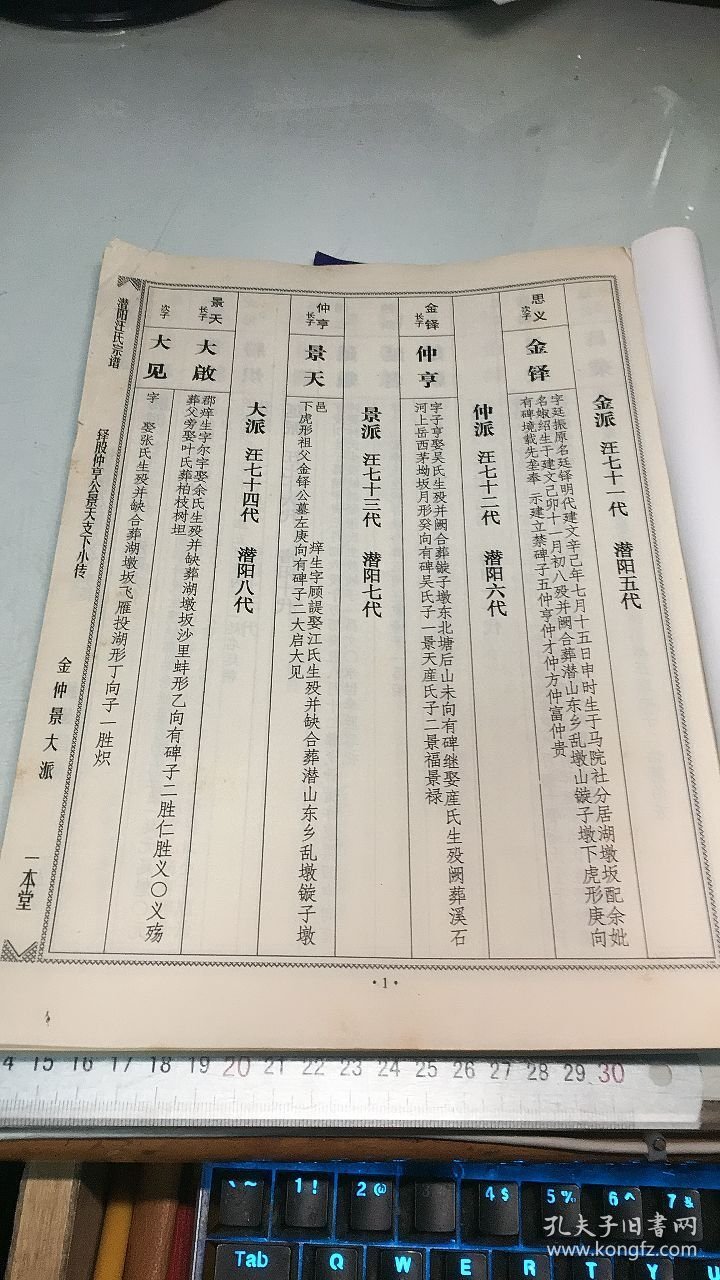 金派　汪七十一代　潜阳五代
思义
次子
金铎
字廷振原名廷铎明代建文辛己年七月十五日申时生于马院社分居湖墩坂配余妣
名娥绍生于建文己卯十一月初八殁并阙合葬潜山东乡乱墩山鏇子墩下虎形庚向
有碑境载先垄奉　示建立禁碑子五仲亨仲才仲方仲富仲贵
仲派　汪七十二代　潜阳六代
金铎
长子
仲亨
字子亨娶吴氏生殁并阙合葬鏇子墩东北塘后山未向有碑继娶産氏生殁阙葬溪石
河上岳西茅坳坂月形癸向有碑吴氏子一景天産氏子二景福景禄
景派　汪七十三代　潜阳七代
仲亨
长子
景天
邑　　　　　　庠生字顾諟娶江氏生殁并缺合葬潜山东乡乱墩鏇子墩
下虎形祖父金铎公墓左庚向有碑子二大启大见
大派　汪七十四代　潜阳八代
景天
长子
大啟
郡庠生字尔字娶余氏生殁并缺葬湖墩坂沙里蚌形乙向有碑子二胜仁胜义〇义殇
葬父旁娶叶氏葬柏枝树坦
次子
大见
字　娶张氏生殁并缺合葬湖墩坂飞雁投湖形丁向子一胜炽
潜阳汪氏宗谱
铎股仲亨公景天支下小传
金仲景大派
一本堂
·1·
14 15 16 17 18 19 20 21 22 23 24 25 26 27 28 29 30
~ 1 ! 2 @ 3 4 $ 5 % 6 ^ 7 &
Tab Q W E R T Y U
孔夫子旧书网
www.kongfz.com